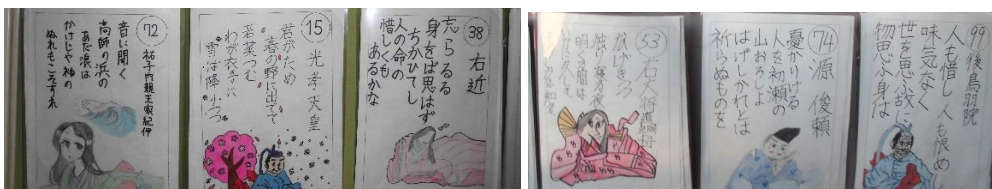 72
祐子内親王家紀伊
音に聞く
高師の浜の
あだ浪は
かけじや袖の
ぬれもこそすれ
15
光孝天皇
君がため
春の野に出でて
若菜つむ
わが衣手に
雪は降りつつ
38
右近
忘らるる
身をば思はず
ちかひてし
人の命の
惜しくも
あるかな
53
右大将道綱母
なげきつつ
独り寝る夜の
明くる間は
74
源俊頼
憂かりける
人を初瀬の
山おろしよ
はげしかれとは
祈らぬものを
99
後鳥羽院
人も惜し人も恨め
味気なく
世を思ふ故に
物思ふ身は